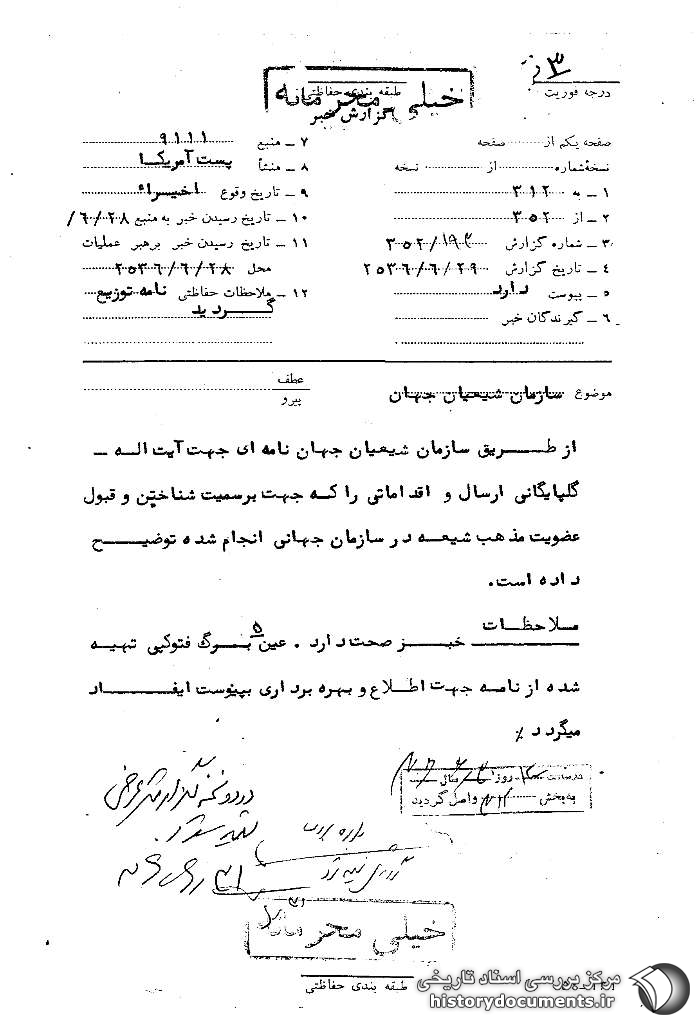 ۳
درجه فوریت
طبقه بندی حفاظتی
خیلی محرمانه
گزارش خبر
صفحه یکم از صفحه
نسخه شماره از نسخه
۱ – به ۳۱۲
۲ – از ۳۵۲
۳ – شماره گزارش ۳۵۲/
۴ – تاریخ گزارش ۲۵۳۶/۶/۲۹
۵ – پیوست دارد
۶ – گیرندگان خبر
۷ – منبع ۹۱۱۱
۸ – منشأ پست آمریکا
۹ – تاریخ وقوع اخیرا"
۱۰ – تاریخ رسیدن خبر به منبع ۶/۲۸/
۱۱ – تاریخ رسیدن خبر برهبر عملیات
محل ۲۵۳۶/۶/۲۸
۱۲ – ملاحظات حفاظتی نامه توزیع
گردید
موضوع سازمان شیعیان جهان
عطف
پیرو
از طریق سازمان شیعیان جهان نامه ای جهت آیت اله –
گلپایگانی ارسال و اقداماتی را که جهت برسمیت شناختن و قبول
عضویت مذهب شیعه در سازمان جهانی انجام شده توضیح
داده است.
ملاحظات
خبر صحت دارد . عین ۵ برگ فتوکپی تهیه
شده از نامه جهت اطلاع و بهره برداری بپیوست ایفاد
میگردد ٪
روز سال
به بخش ۳۱۲ واصل گردید
خیلی محرمانه
طبقه بندی حفاظتی
مرکز بررسی اسناد تاریخی
historydocuments.ir